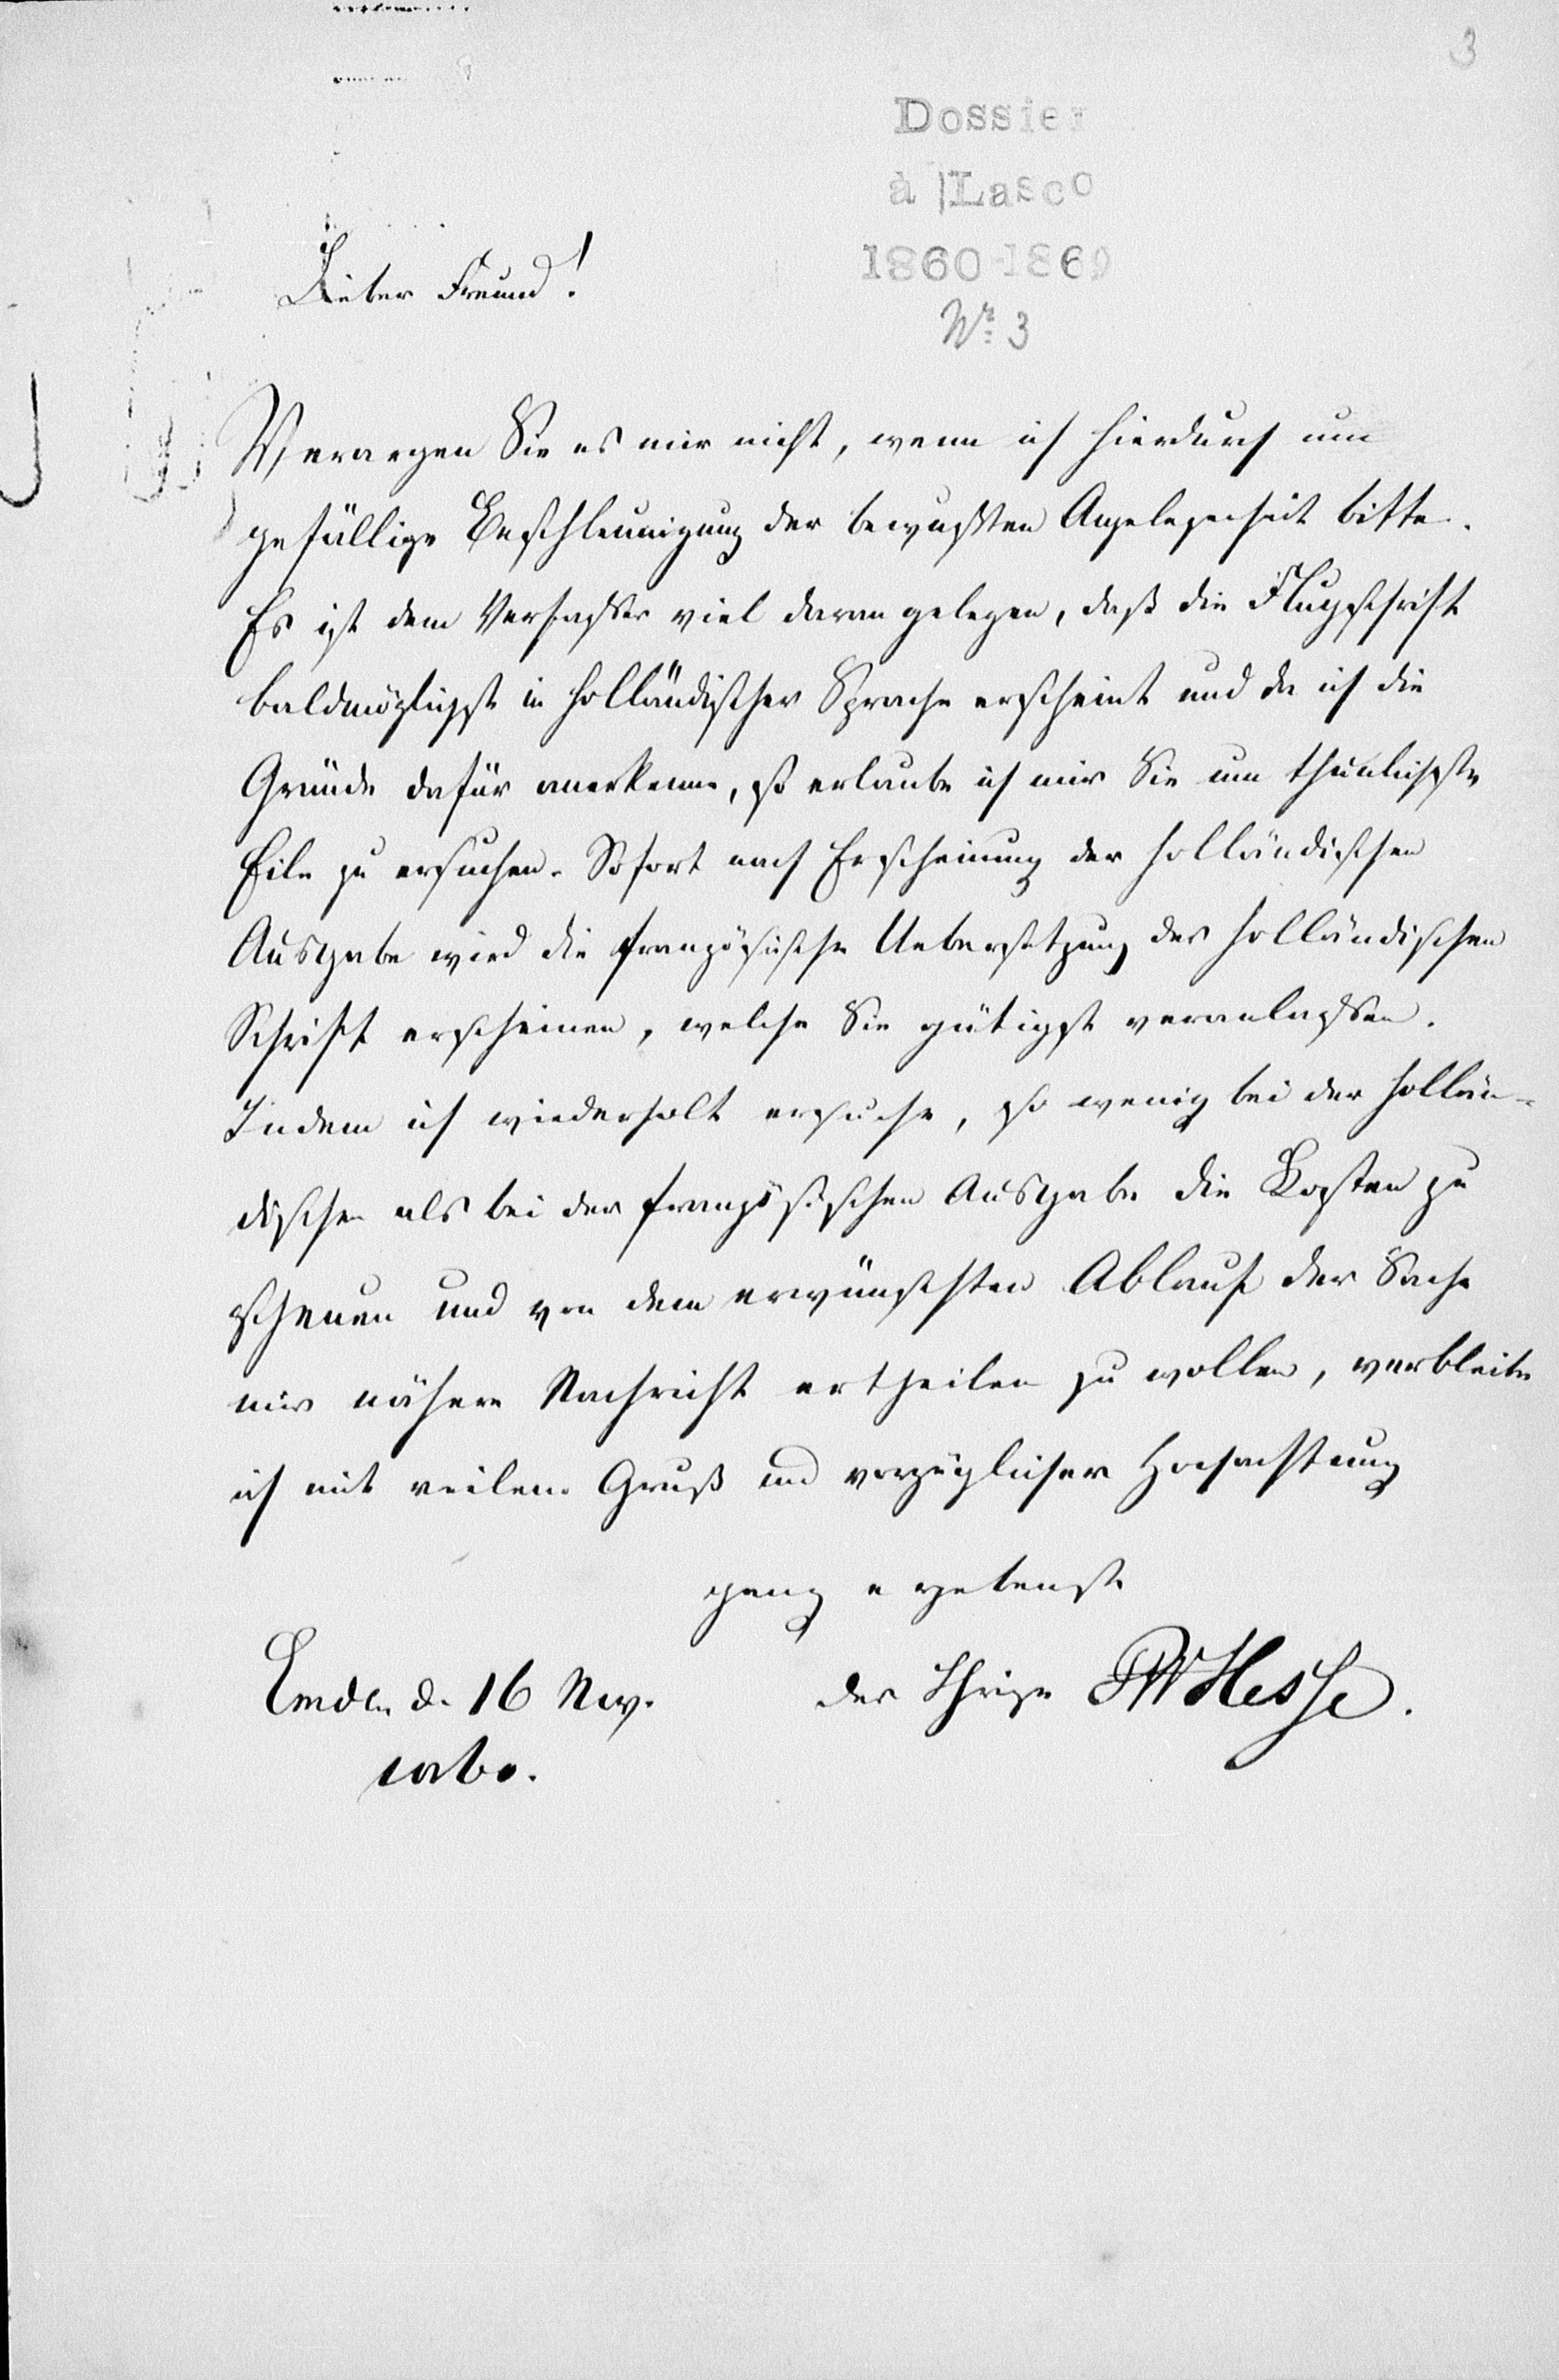 3
Dossier
à Lasco
1860-1869
Nr. 3
Lieber Freund!
Verargen Sie es mir nicht, wenn ich hierdurch um
gefällige Beschleunigung der bewußten Angelegenheit bitte.
Es ist dem Verfasser viel daran gelegen, daß die Flugschrift
baldmöglichst in holländischer Sprache erscheint und da ich die
Gründe dafür anerkenne, so erlaube ich mir Sie um thunlichste
Eile zu ersuchen. Sofort nach Erscheinung der holländischen
Ausgabe wird die französische Uebersetzung der holländischen
Schrift erscheinen, welche Sie gütigst veranlassen.
Indem ich wiederholt ersuche, so wenig bei der hollän-
dischen als bei der französischen Ausgabe die Kosten zu
scheuen und von dem erwünschten Ablauf der Sache
mir nähere Nachricht ertheilen zu wollen, verbleibe
ich mit Gruß und vorzüglicher Hochachtung
ganz ergebenst
Emden d. 16 Nov. der Ihrige PW Hesse.